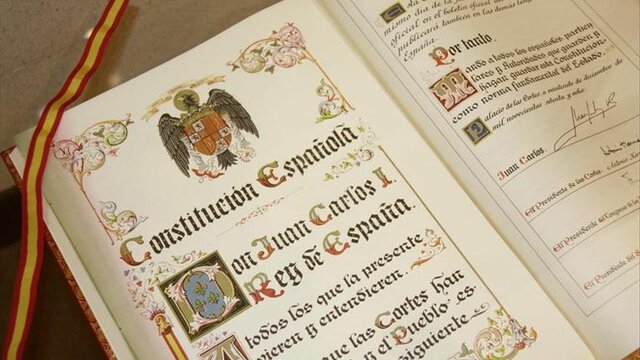 Constitución Española
Don Juan Carlos I,
Rey de España,
A todos los que la presente
vieren y entendieren
que las Cortes han
y el Pueblo es-
siguiente
misma día de la
oficial en el boletín oficial
publicará también en las demás
España.
Por tanto,
Mando a todos los españoles, particu-
lares y Autoridades, que guarden y
hagan guardar esta Constitución
como norma fundamental del Estado.
Palacio de las Cortes, a veintisiete de diciembre de
mil novecientos setenta y ocho.
Juan Carlos
El Presidente de las Cortes
El Presidente del Congreso de los
El Presidente del Senado